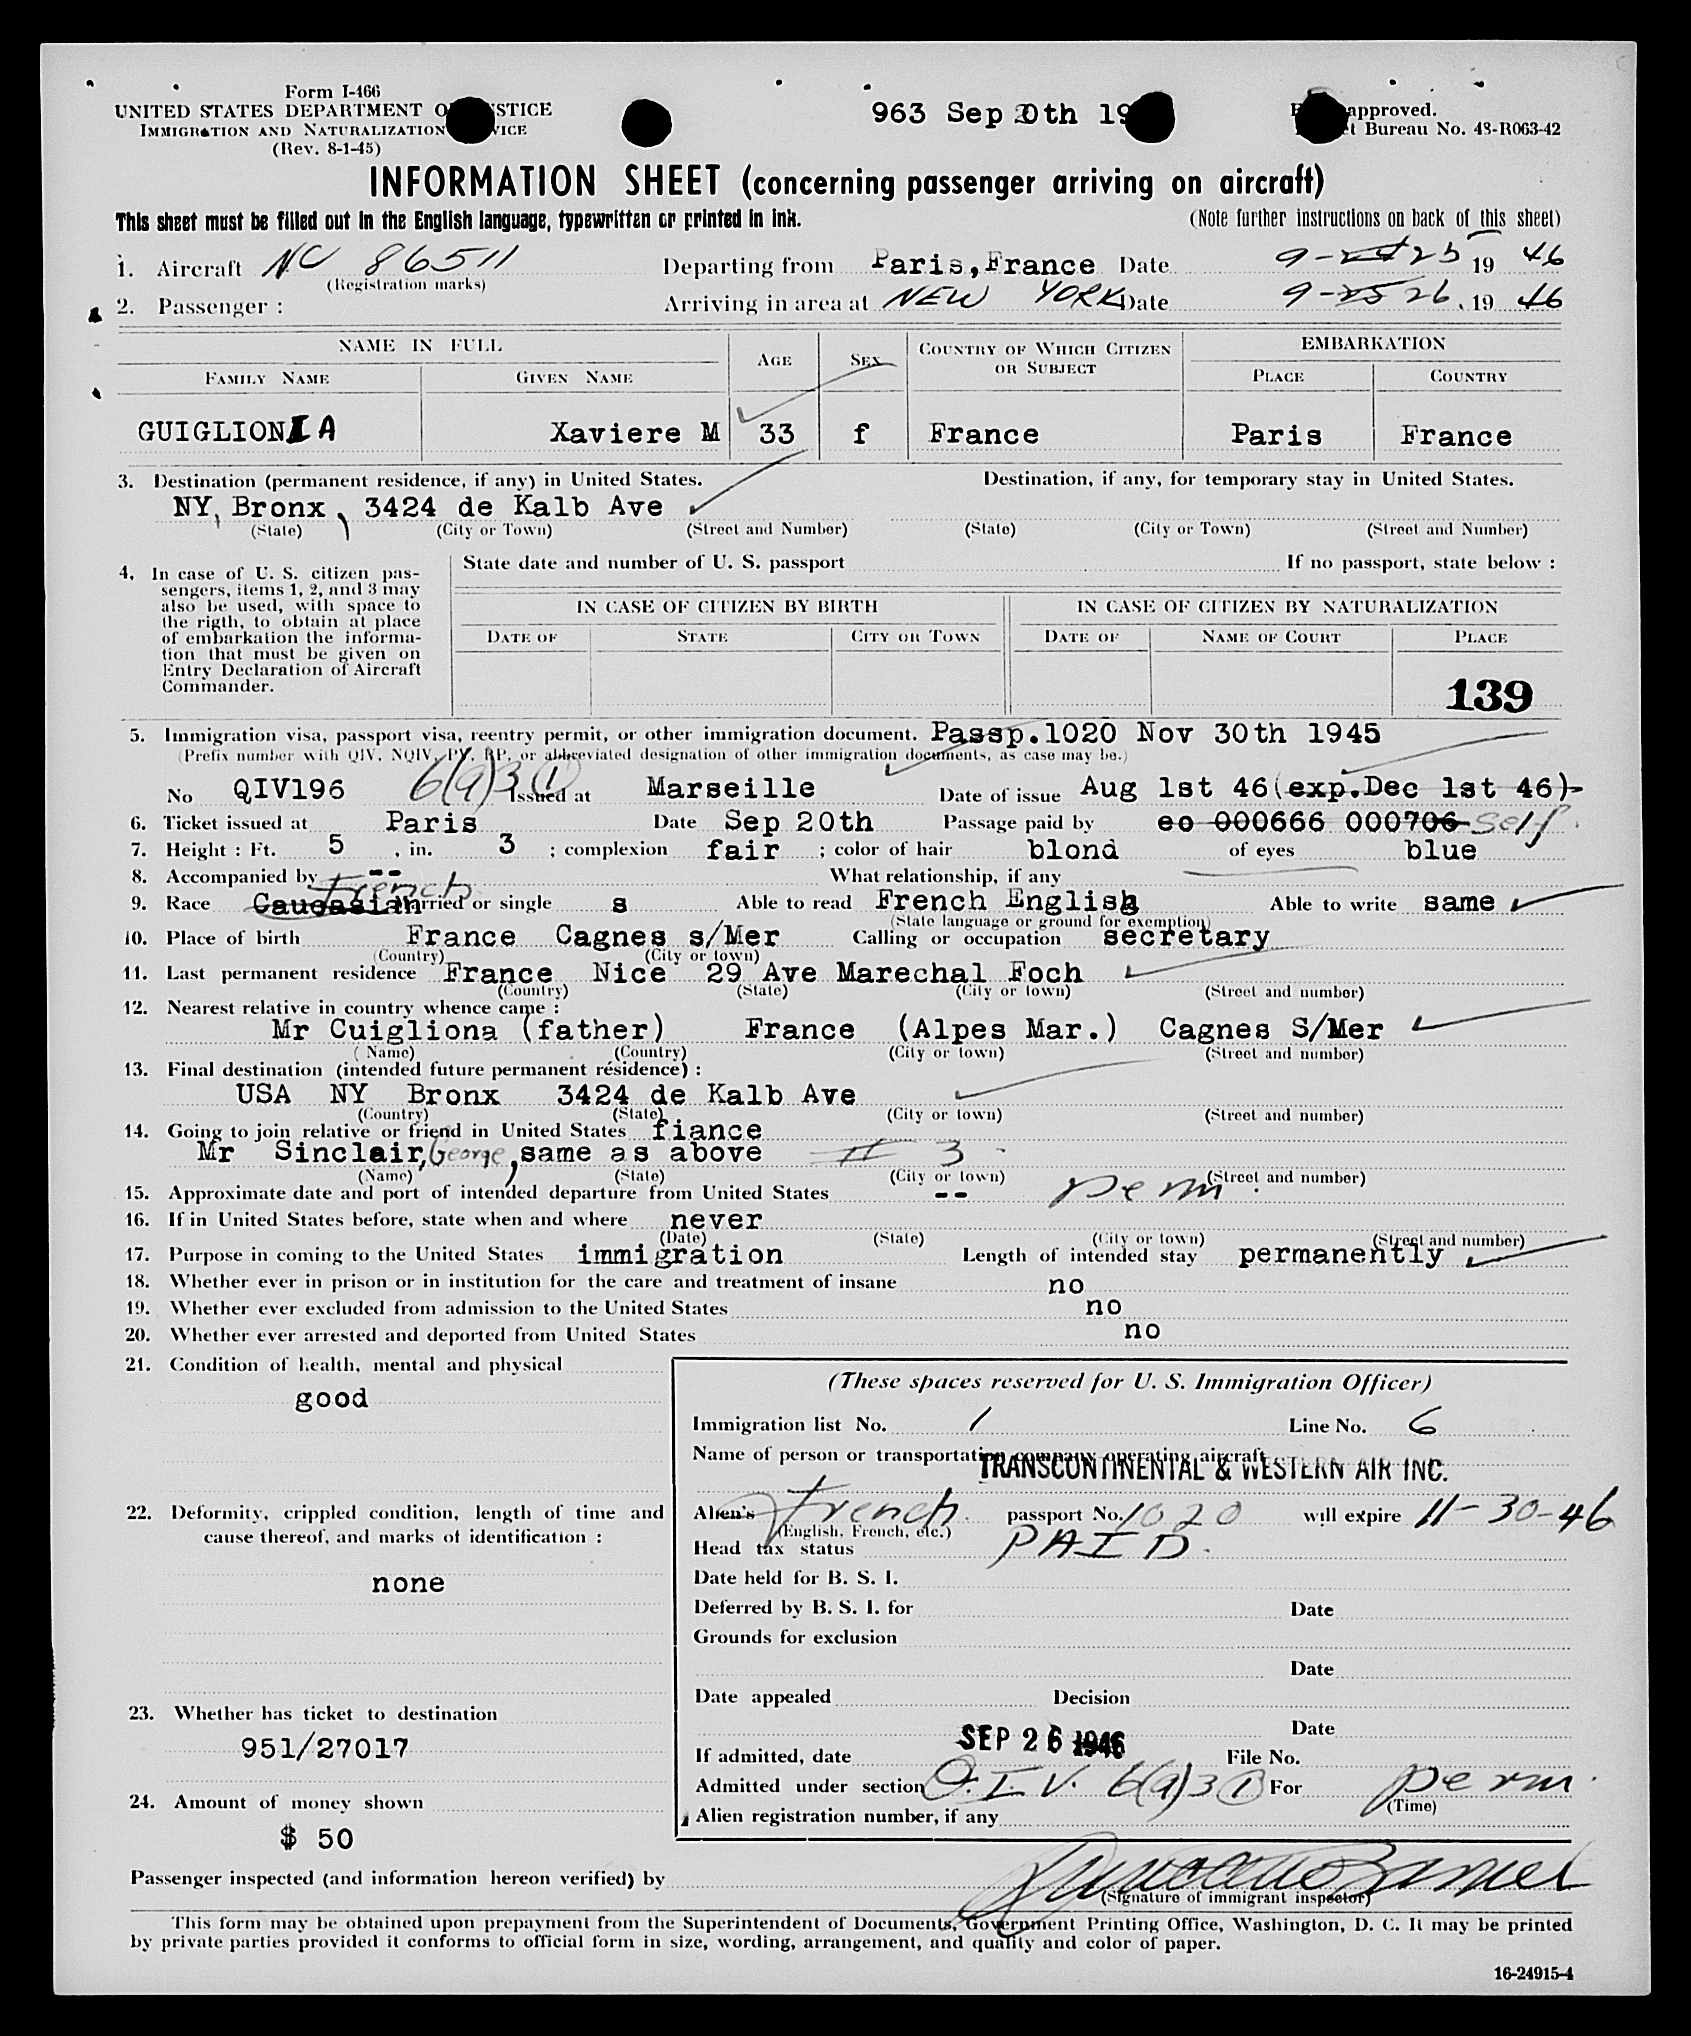 Form I-466
UNITED STATES DEPARTMENT O STICE
IMMIGRATION AND NATURALIZATION VICE
(Rev. 8-1-45)
963 Sep 20th 19
approved.
t Bureau No. 43-R063-42
INFORMATION SHEET (concerning passenger arriving on aircraft)
This sheet must be filled out in the English language, typewritten or printed in ink.
(Note further instructions on back of this sheet)
1. Aircraft NC 86511 Departing from Paris,France Date 9-25 19 46
(Registration marks)
2. Passenger : Arriving in area at NEW YORK Date 9-25 26, 19 46
NAME IN FULL AGE SEX COUNTRY OF WHICH CITIZEN OR SUBJECT EMBARKATION
FAMILY NAME GIVEN NAME PLACE COUNTRY
GUIGLIONIA Xaviere M 33 f France Paris France
3. Destination (permanent residence, if any) in United States. Destination, if any, for temporary stay in United States.
NY, Bronx, 3424 de Kalb Ave
(State) (City or Town) (Street and Number) (State) (City or Town) (Street and Number)
4. In case of U. S. citizen pas-
sengers, items 1, 2, and 3 may
also be used, with space to
the rigth, to obtain at place
of embarkation the informa-
tion that must be given on
Entry Declaration of Aircraft
Commander.
State date and number of U. S. passport If no passport, state below :
IN CASE OF CITIZEN BY BIRTH IN CASE OF CITIZEN BY NATURALIZATION
DATE OF STATE CITY OR TOWN DATE OF NAME OF COURT PLACE
139
5. Immigration visa, passport visa, reentry permit, or other immigration document. Passp.1020 Nov 30th 1945
(Prefix number with QIV, NQIV, PV, RP, or abbreviated designation of other immigration documents, as case may be.)
No QIV196 6(a)3(1) Issued at Marseille Date of issue Aug 1st 46(exp.Dec 1st 46)-
6. Ticket issued at Paris Date Sep 20th Passage paid by eo 000666 000706 Self
7. Height : Ft. 5 , in. 3 ; complexion fair ; color of hair blond of eyes blue
8. Accompanied by -- What relationship, if any
9. Race Caucasian French Married or single s Able to read French English Able to write same
(State language or ground for exemption)
10. Place of birth France Cagnes s/Mer Calling or occupation secretary
(Country) (City or town)
11. Last permanent residence France Nice 29 Ave Marechal Foch
(Country) (State) (City or town) (Street and number)
12. Nearest relative in country whence came :
Mr Cuigliona (father) France (Alpes Mar.) Cagnes S/Mer
(Name) (Country) (City or town) (Street and number)
13. Final destination (intended future permanent résidence) :
USA NY Bronx 3424 de Kalb Ave
(Country) (State) (City or town) (Street and number)
14. Going to join relative or friend in United States fiance
Mr Sinclair, George, same as above # 3
(Name) (State) (City or town) (Street and number)
15. Approximate date and port of intended departure from United States -- perm.
16. If in United States before, state when and where never
(Date) (State) (City or town) (Street and number)
17. Purpose in coming to the United States immigration Length of intended stay permanently
18. Whether ever in prison or in institution for the care and treatment of insane no
19. Whether ever excluded from admission to the United States no
20. Whether ever arrested and deported from United States no
21. Condition of health, mental and physical
good
22. Deformity, crippled condition, length of time and
cause thereof, and marks of identification :
none
23. Whether has ticket to destination
951/27017
24. Amount of money shown
$ 50
(These spaces reserved for U. S. Immigration Officer)
Immigration list No. 1 Line No. 6
Name of person or transportation company operating aircraft
TRANSCONTINENTAL & WESTERN AIR INC.
Alien's French passport No. 1020 will expire 11-30-46
(English, French, etc.)
Head tax status PAID.
Date held for B. S. I.
Deferred by B. S. I. for Date
Grounds for exclusion
Date
Date appealed Decision
Date
If admitted, date SEP 26 1946 File No.
Admitted under section Q.I.V. 6(a)3(1) For perm.
(Time)
Alien registration number, if any
Passenger inspected (and information hereon verified) by
(Signature of immigrant inspector)
This form may be obtained upon prepayment from the Superintendent of Documents, Government Printing Office, Washington, D. C. It may be printed
by private parties provided it conforms to official form in size, wording, arrangement, and quality and color of paper.
16-24915-4